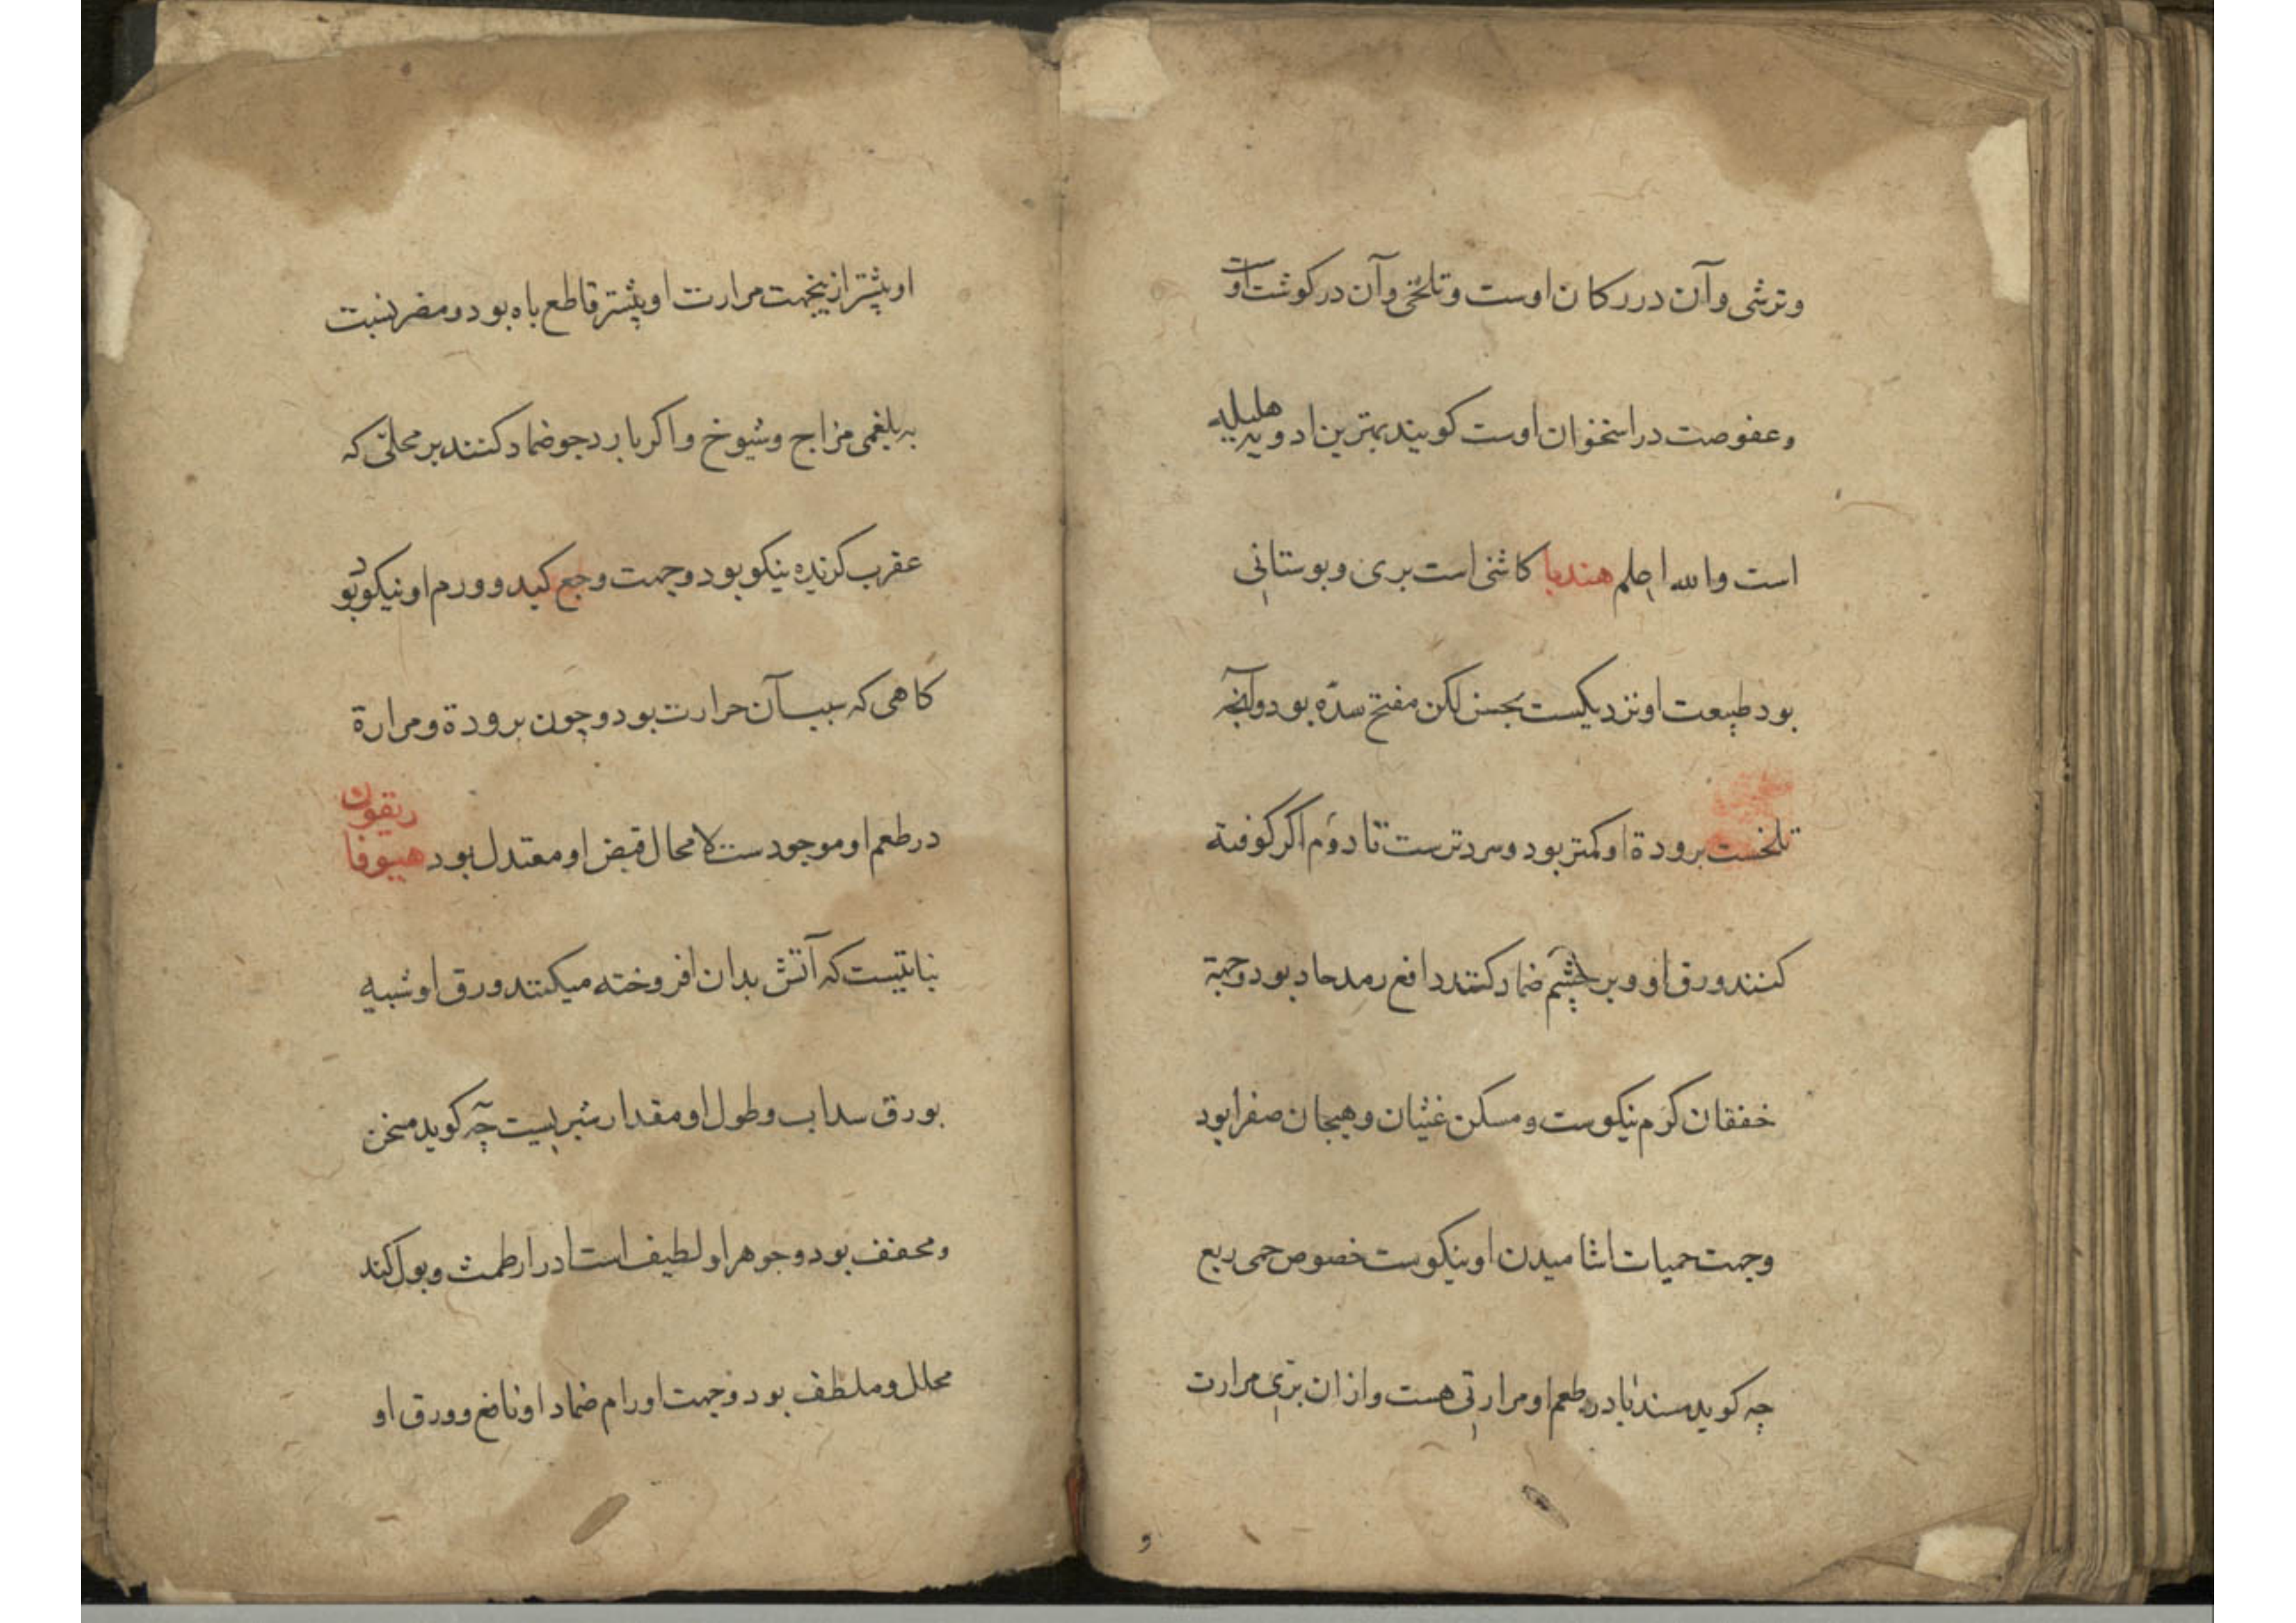 وترشی وآن در رکان اوست وتلخی وآن در کوشت اوست
وعفوصت در استخوان اوست کویند بهترین ادویه هلیلیه
است والله اعلم هندبا کاشنی است بری وبوستانی
بود طبیعت او نزدیکست بجس لکن مفتح سدّه بود وآنچه
تلخست برودة او کمتر بود وسردترست تا دوم اکر کوفته
کنند ورق او وبر چشم ضماد کنند دافع رمد حاد بود وجهة
خفقان کرم نیکوست ومسکن غثیان وهیجان صفرا بود
وجهت حمیات اشامیدن او نیکوست خصوص حمی ربع
چه کوید در طعم او مرارتی هست واز ان برّی مرارت
او بیشتر ازینجهت مرارت او بیشتر قاطع باه بود ومضر بنسبت
به بلغمی مزاج وشیوخ واکر بارد جو ضماد کنند بر محلّی که
عقرب کزیده نیکو بود وجهت وجع کبد وورم او نیکو بود
کاهی که سبب آن حرارت بود وچون برودة ومرارة
در طعم او موجودست لا محال قبض او معتدل بود هیوفاریقون
نباتیست که آتش بدان افروخته میکنند ورق او شبیه
بورق سداب وطول او مقدار شبریست چه کوید مسخن
ومجفف بود وجوهر او لطیف است ادرار طمث وبول کند
محلل وملطف بود وجهت اورام ضماد او نافع وورق او